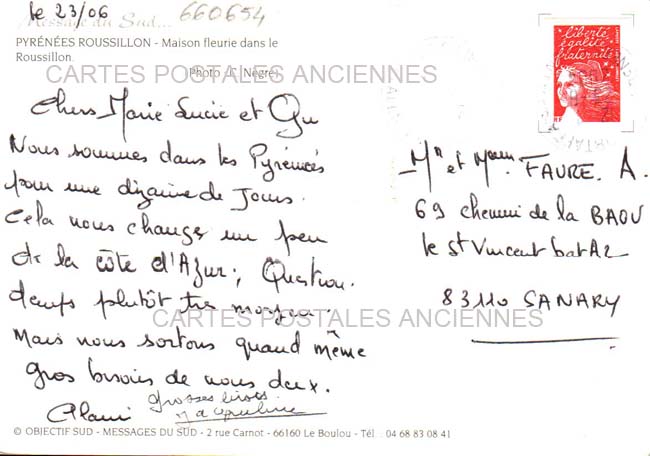 le 23/06
660654
Message du Sud...
PYRÉNÉES ROUSSILLON - Maison fleurie dans le
Roussillon.
Photo J.C. Nègre
CARTES POSTALES ANCIENNES
Chers Marie Lucie et Gu
Nous sommes dans les Pyrénées
pour une dizaine de Jours.
Cela nous change un peu
de la côte d'Azur; Question.
temps plutôt très moyen.
Mais nous sortons quand même
Gros bisous de nous deux.
Alain
grosses bises
liberté
égalité
fraternité
RF
Mr et Mme FAURE. A.
69 chemin de la BAOU
le St Vincent bat A2
83110 SANARY
CARTES POSTALES ANCIENNES
© OBJECTIF SUD - MESSAGES DU SUD - 2 rue Carnot - 66160 Le Boulou - Tél. 04 68 83 08 41